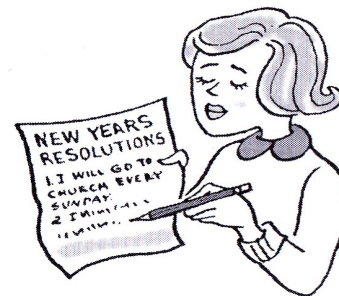 NEW YEARS
RESOLUTIONS
1. I WILL GO TO
CHURCH EVERY
SUNDAY.
2 I